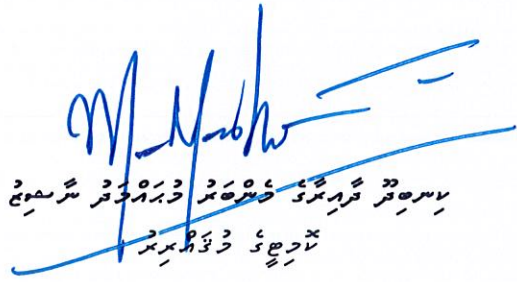 ކިނބިދޫ ދާއިރާގެ މެންބަރު މުޙައްމަދު ނާޝިޒު
ކޮމިޓީގެ މުޤައްރިރު